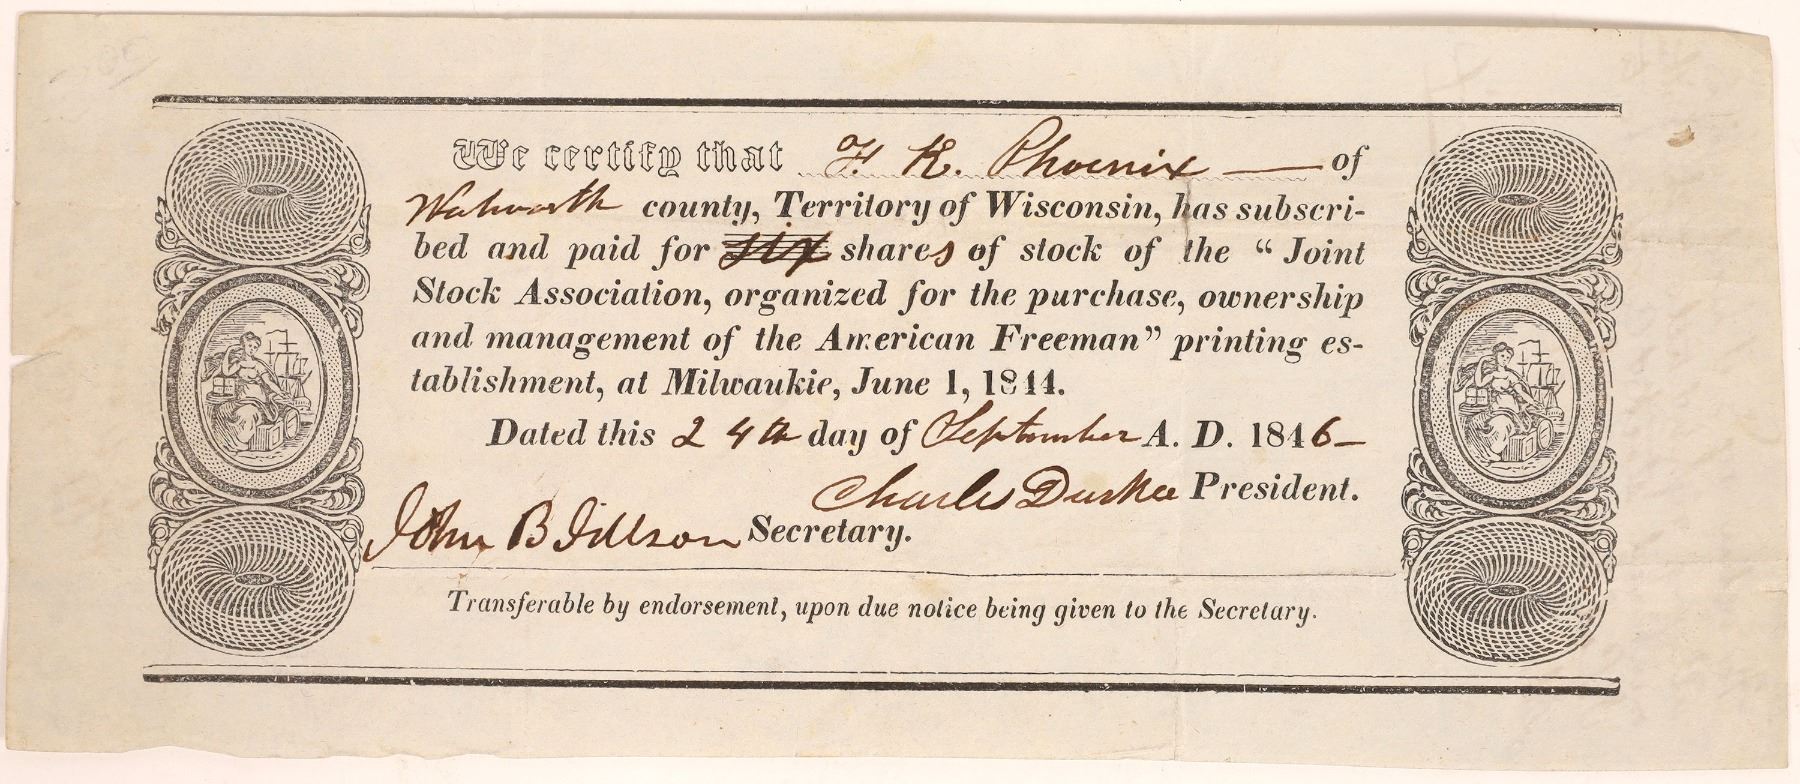 We certify that F. K. Phoenix — of
Walworth county, Territory of Wisconsin, has subscri-
bed and paid for six shares of stock of the “Joint
Stock Association, organized for the purchase, ownership
and management of the American Freeman” printing es-
tablishment, at Milwaukie, June 1, 1844.
Dated this 24th day of September A. D. 1846—
Charles Durkee President.
John B Jillson Secretary.
Transferable by endorsement, upon due notice being given to the Secretary.